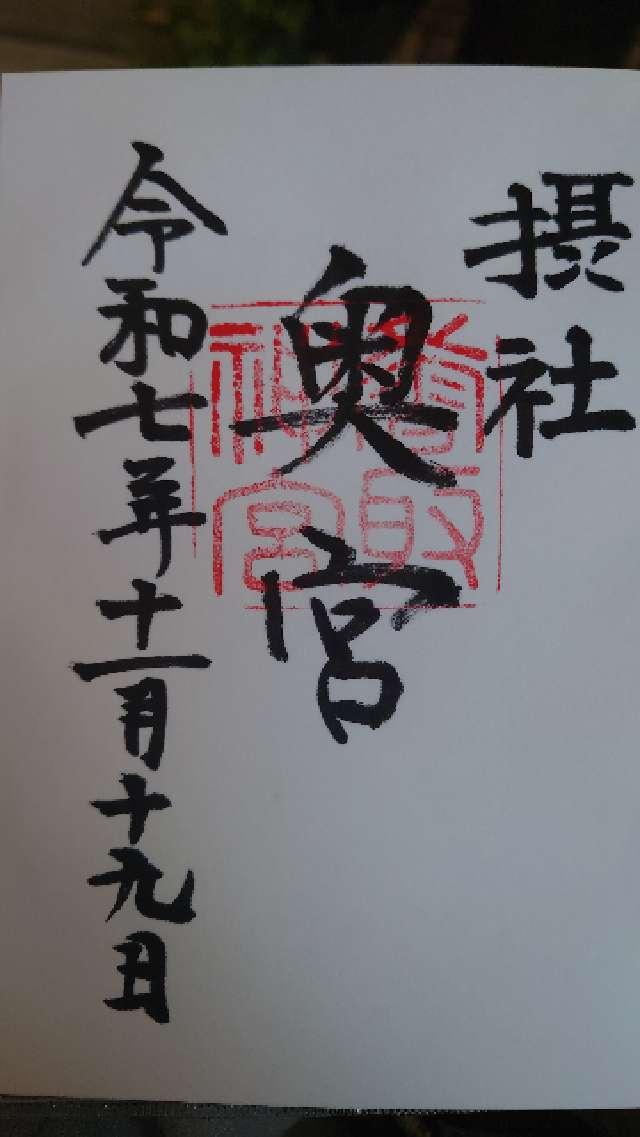 摂社
奥宮
香取
神宮
令和七年十一月十九日